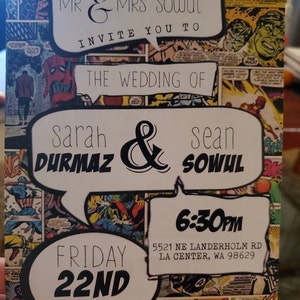 MR & MRS SOWUL
INVITE YOU TO
THE WEDDING OF
Sarah & Sean
DURMAZ SOWUL
6:30PM
5521 NE LANDERHOLM RD
LA CENTER, WA 98629
FRIDAY
22ND